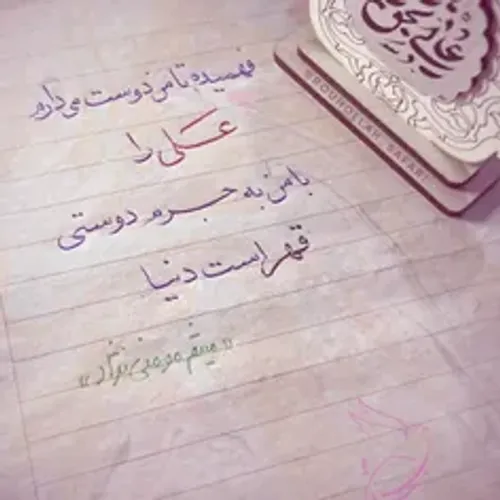 فهمیده تا من دوست می‌دارم
علی را
با من به جرم دوستی
قهر است دنیا
«میثم مومنی نژاد»
ROUHOLLAH SAFARI